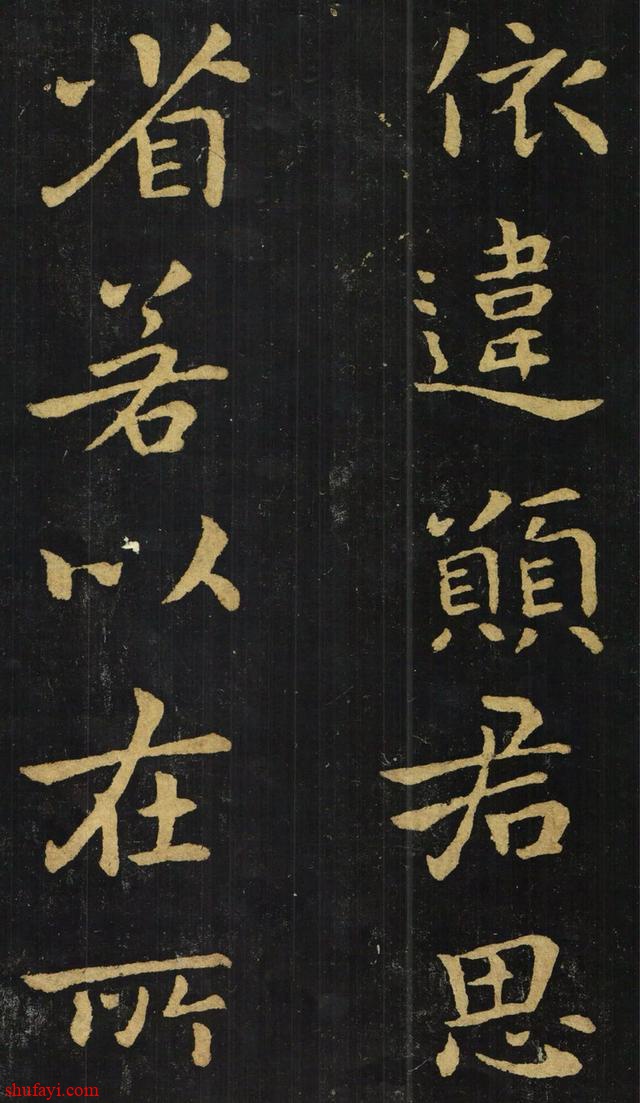 依違願君思
省若以在所
shufayi.com